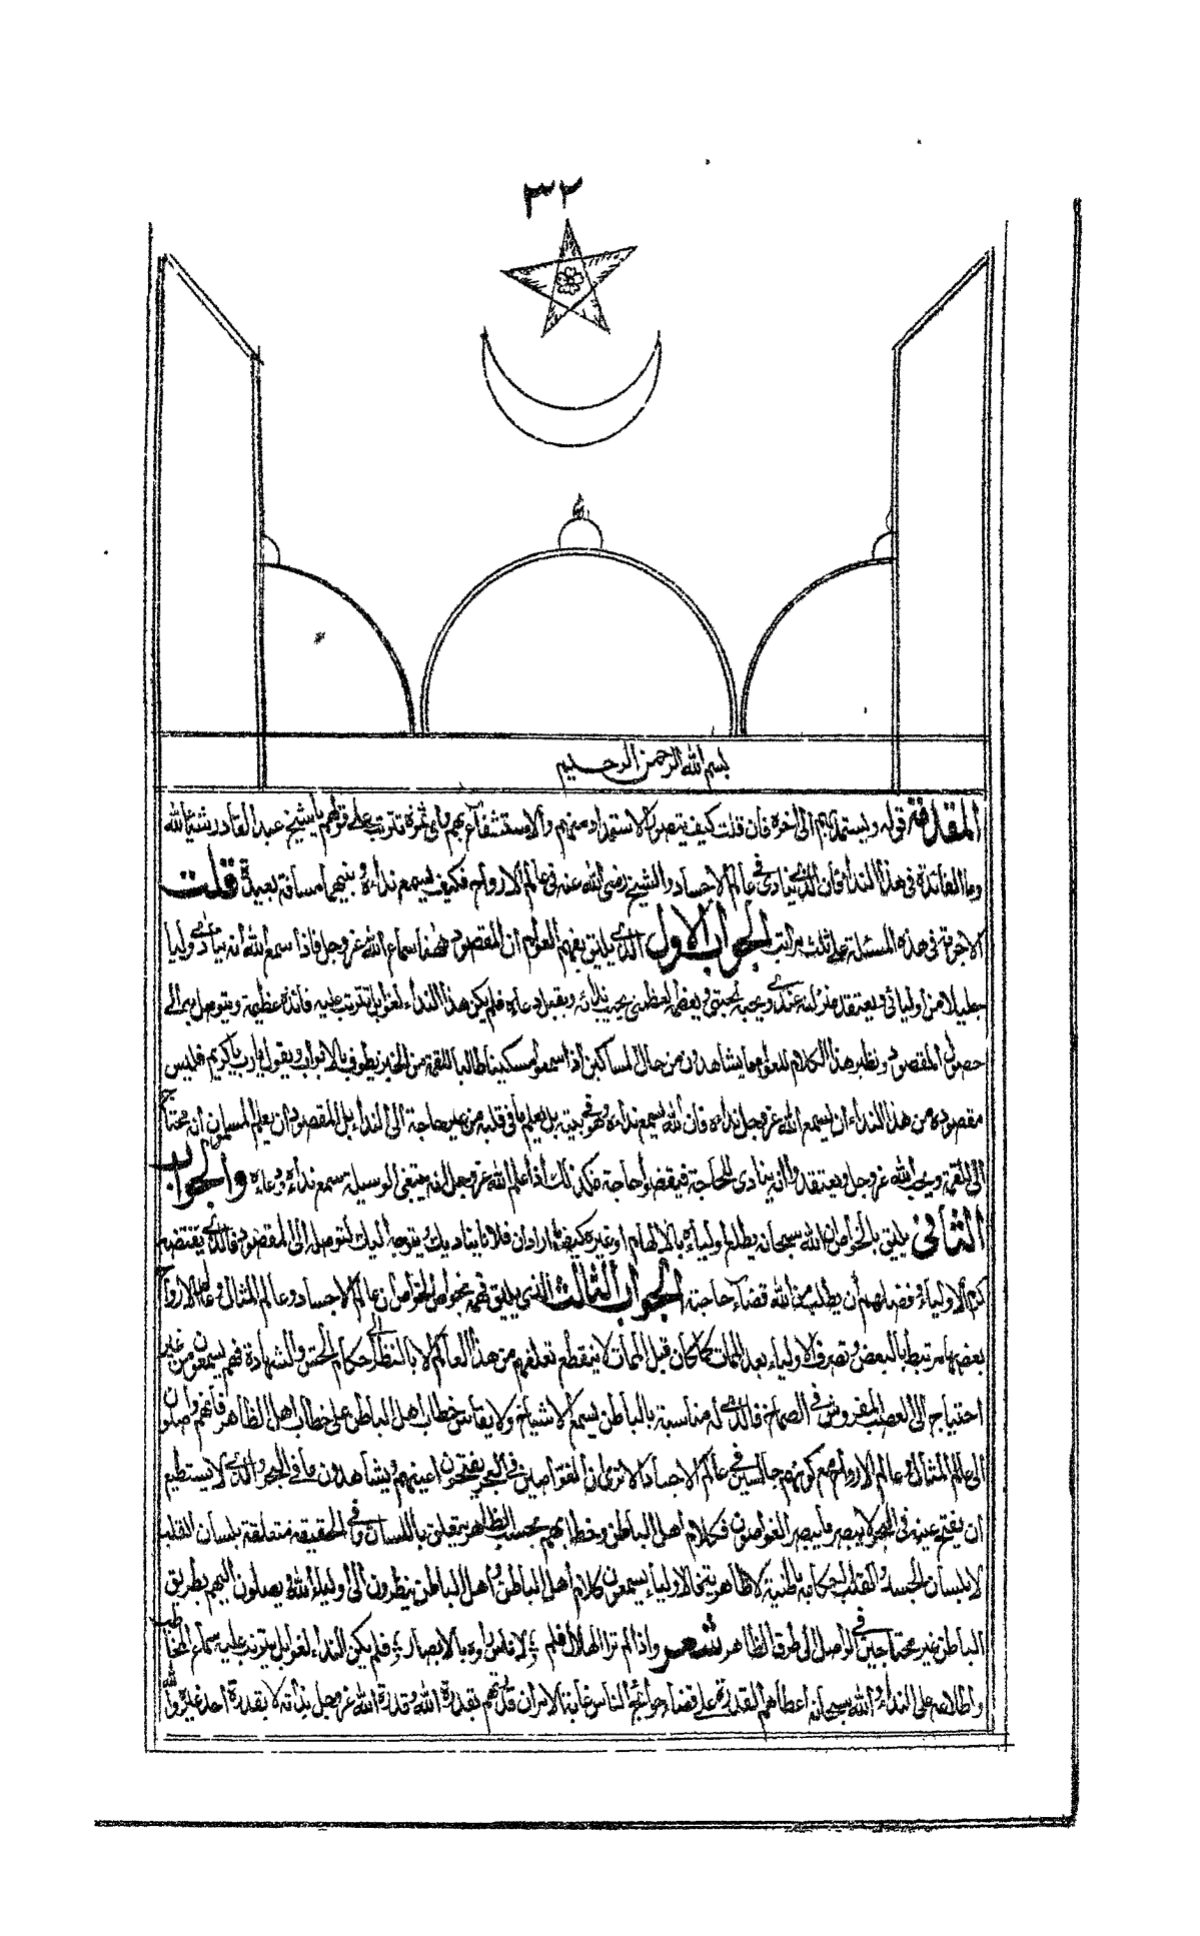 ٣٢
بسم الله الرحمن الرحيم
المقدمة قوله ويستمد بهم الى اخره فان قلت كيف يتصور الاستمداد منهم والاستشفاع بهم واى ثمرة تترتب على قولهم يا شيخ عبد القادر شيئا لله
وما الفائدة فى هذا النداء فان الذى ينادى فى عالم الاجساد والشيخ رضى الله عنه فى عالم الارواح فكيف يسمع نداءه وبينهما مسافة بعيدة قلت
الاجوبة فى هذه المسئلة على ثلث مراتب الجواب الاول الذى يليق بفهم العوام ان المقصود ههنا سماع الله عز وجل فاذا سمع الله انه ينادى وليا
جليلا من اوليائى ويعتقد منزلته عندى ويحبه لمحبتى ويعظمه لعظمتى يجيب ندائه ويقبل دعاءه فلم يكن هذا النداء لغوا بل تترتب عليه فائدة عظيمة ويتوصل به الى
حصول المقصود ونظير هذا الكلام للعوام ما يشاهدون من حال المساكين اذا سمعوا مسكينا طالبا للقمة من الخبز يطوف بالابواب ويقول يا رب يا كريم فليس
مقصوده من هذا النداء ان يسمع الله عز وجل نداءه فان الله يسمع نداءه وهو فى بيته بل يعلم ما فى قلبه من غير حاجة الى النداء بل المقصود ان يعلم المسلمون انه محتاج
الى اللقمة ويحب الله عز وجل ويعتقد وانه ينادى للحاجة فيقضوا حاجة فكذلك اذا علم الله عز وجل انه يبتغى الوسيلة سمع نداءه ودعاءه والجواب
الثانى يليق بالخواص ان الله سبحانه يطلع اولياءه بالالهام او غيره كيف ما اراد ان فلانا يناديك ويتوجه اليك لتوصله الى المقصود فالذى يقتضيه
كرم الاولياء وفضلهم أن يطلب من الله قضاء حاجته الجواب الثالث الذى يليق فهمه بخواص الخواص ان عالم الاجساد وعالم المثال وعالم الارواح
بعضها مرتبط بالبعض وتصرف الاولياء بعد الممات كما كان قبل الممات لا ينقطع تعلقهم من هذا العالم الا بالنظر الى احكام الحس والشهادة فهم يسمعون من غير
احتياج الى العصب المفروش فى الصماخ فالذى له مناسبة بالباطن يسمع الاشياء ولا يقاس خطاب اهل الباطن على خطاب اهل الظاهر فانهم واصلون
الى عالم المثال وعالم الارواح مع كونهم جالسين فى عالم الاجساد الا ترى ان الغواصين فى البحر يفتحون اعينهم ويشاهدون ما فى البحر والذى لا يستطيع
ان يفتح عينه فى البحر لا يبصر ما يبصر الغواصون فكلام اهل الباطن وخطابهم بحسب الظاهر يتعلق باللسان وفى الحقيقة متعلقة بلسان القلب
لا بلسان الجسد والقلب حكامه باطنية لا ظاهرية فالاولياء يسمعون كلام أهل الباطن واهل الباطن ينظرون الى اولياء الله ويصلون اليهم بطريق
الباطن غير محتاجين فى الوصل الى طرق الظاهر شعر واذا لم تر الهلال فسلم ؛ لاناس راوه بالابصار ؛ فلم يكن النداء لغوا بل يترتب عليه سماع المخاطب
واطلاعه على النداء والله سبحانه اعطاهم القدرة على قضاء حوائج الناس غاية الامر ان قدرتهم بقدرة الله وقدرة الله عز وجل بذاته لا بقدرة احد غيره والله